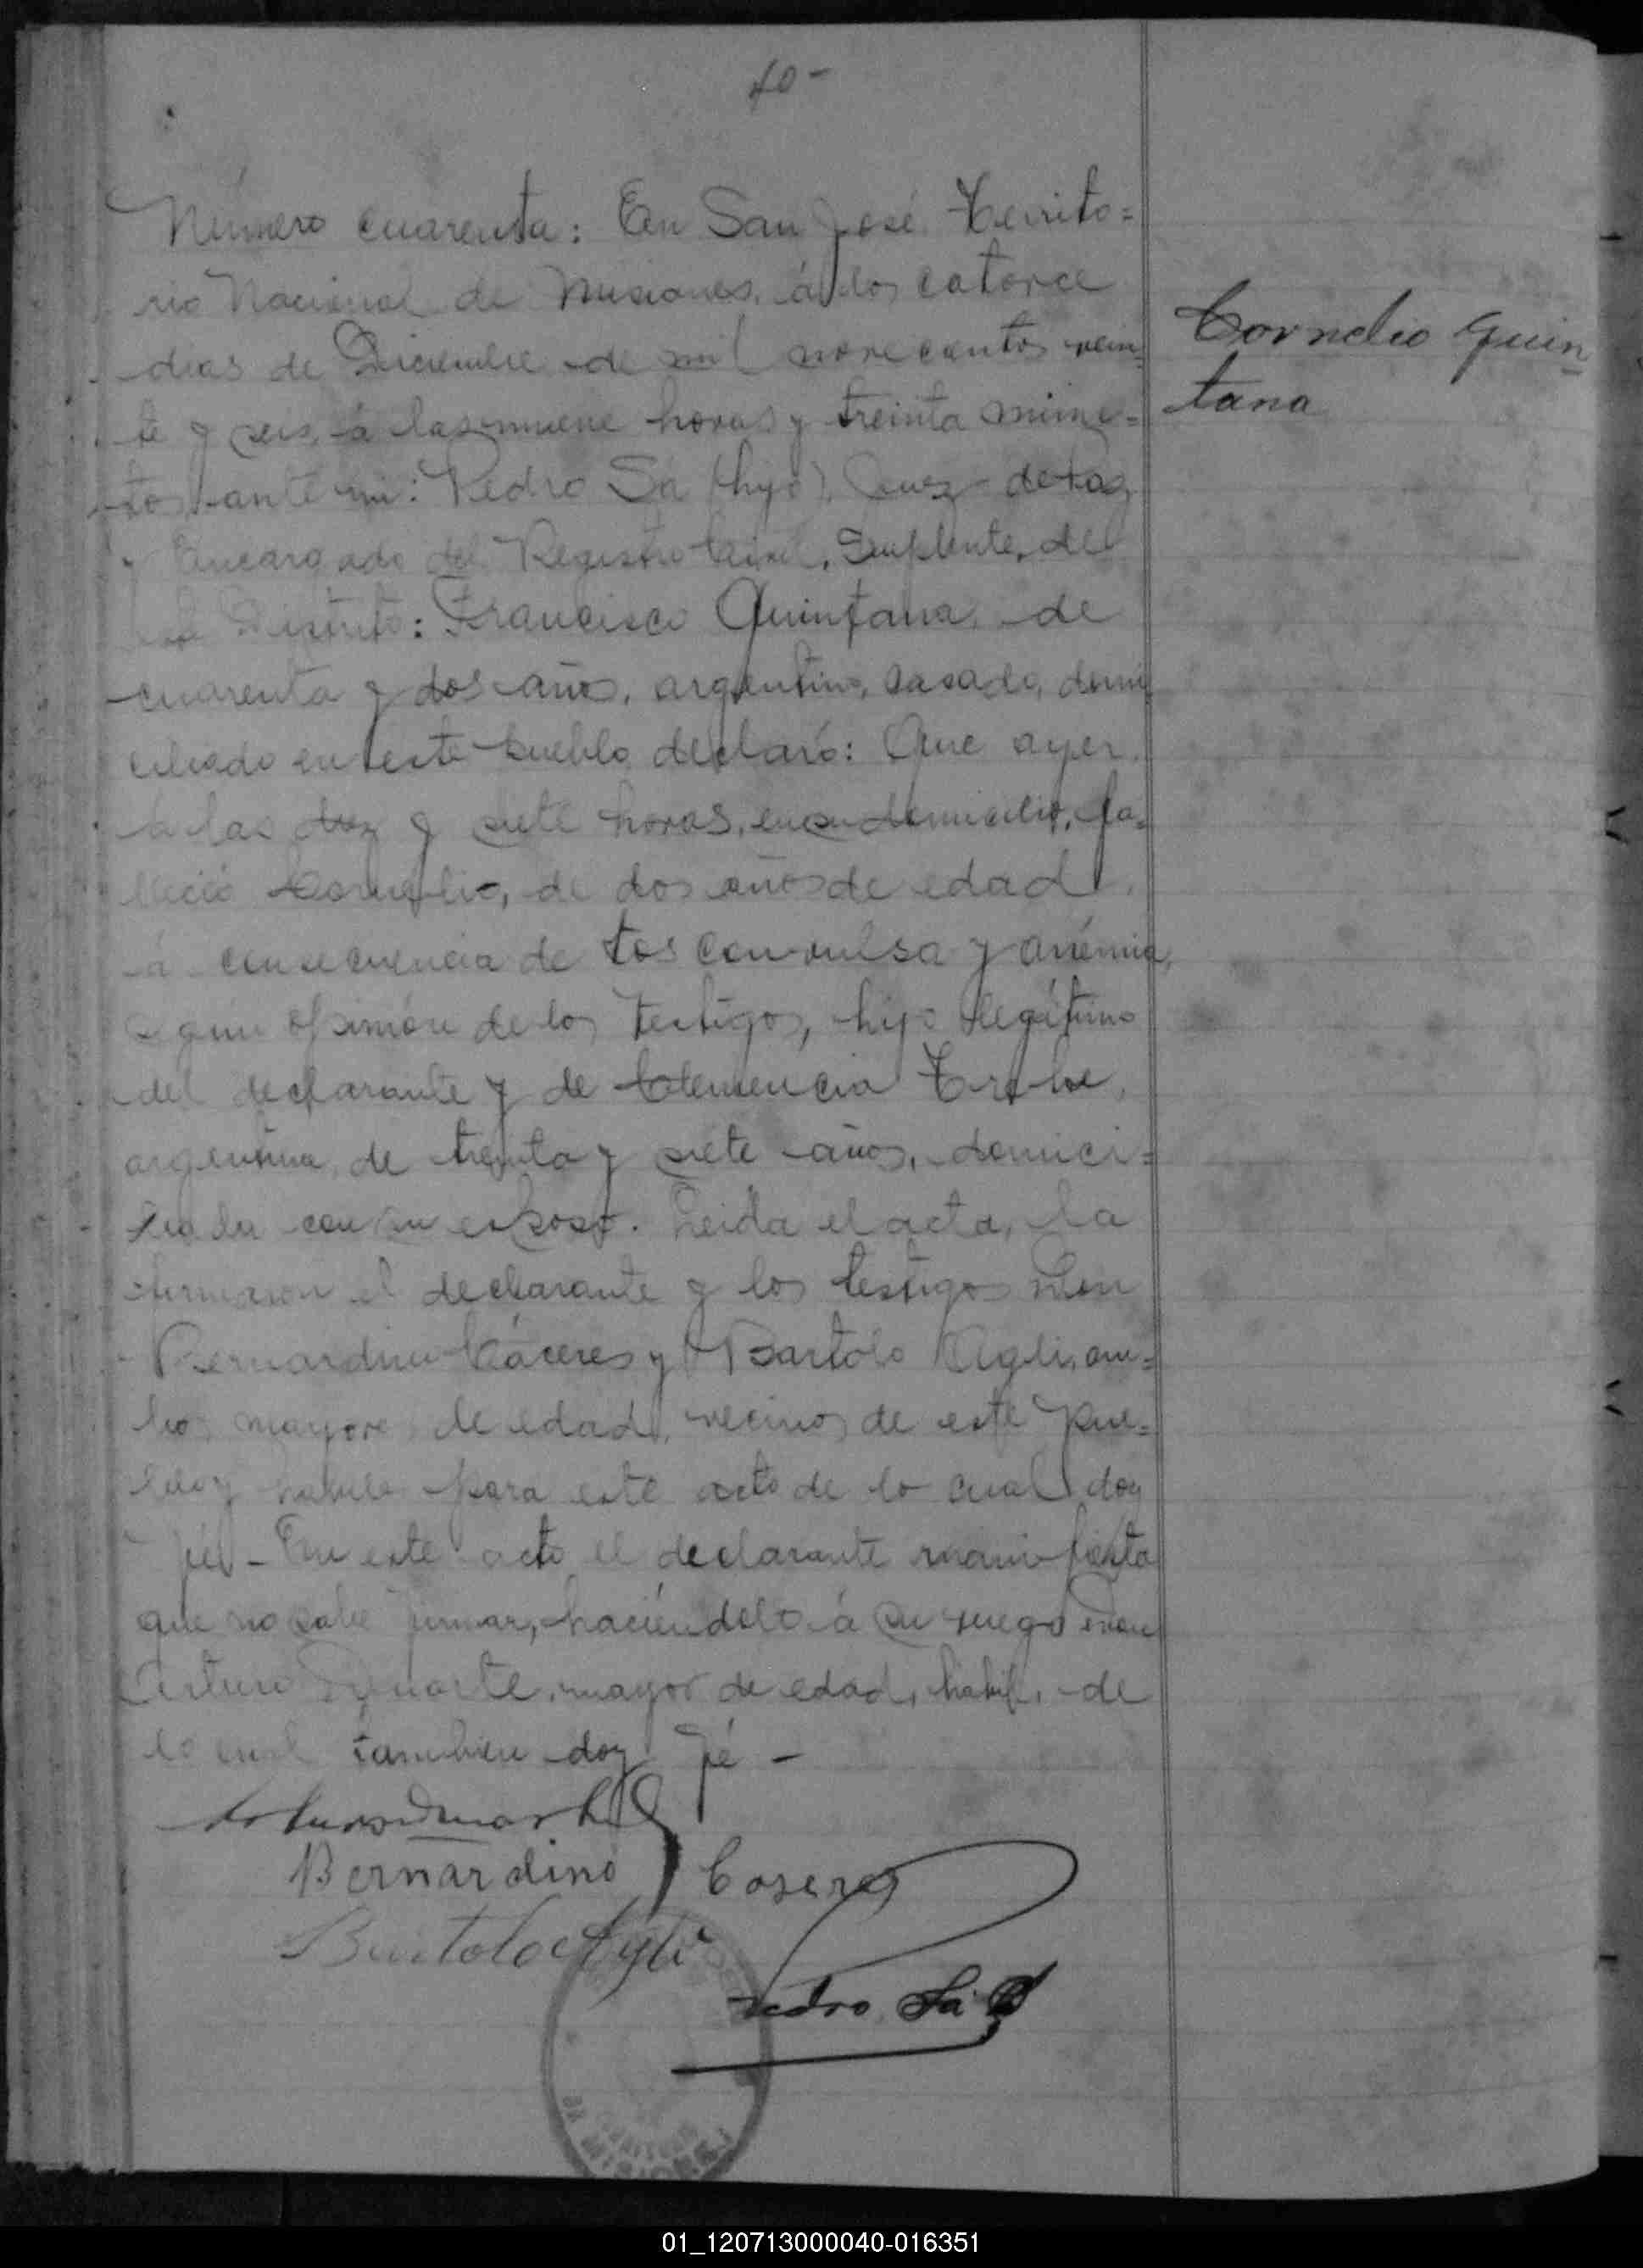 40-
Número cuarenta: En San José Territo=
rio Nacional de Misiones, á los catorce
dias de Diciembre de mil novecientos vein=
te y seis, á las nueve horas y treinta minu=
tos, ante mi: Pedro Sá (hijo), Juez de Paz
y Encargado del Registro Civil, Suplente, de
este Distrito: Francisco Quintana, de
cuarenta y dos años, argentino, casado, domi
ciliado en este pueblo declaró: Que ayer
á las diez y siete horas, en su domicilio, fa=
lleció Cornelio, de dos años de edad,
á consecuencia de tos convulsa y anémia,
segun opinión de los testigos, hijo legítimo
del declarante y de Clemencia
argentina, de treinta y siete años, domici=
liada con su esposo. Leida el acta, la
firmaron el declarante y los testigos Don
Bernardino Cáceres y Bartolo Agli, am=
bos mayores de edad, vecinos de este pue=
blo y habiles para este acto de lo cual doy
fé - En este acto el declarante manifiesta
que no sabe firmar, haciéndolo á su ruego Don
Arturo Duarte, mayor de edad, habil, de
lo cual tambien doy fé -
Cornelio Quin=
tana
Arturo Duarte
Bernardino Caseres
Bartolo Agli
Pedro Sá
MISIONES
01_120713000040-016351